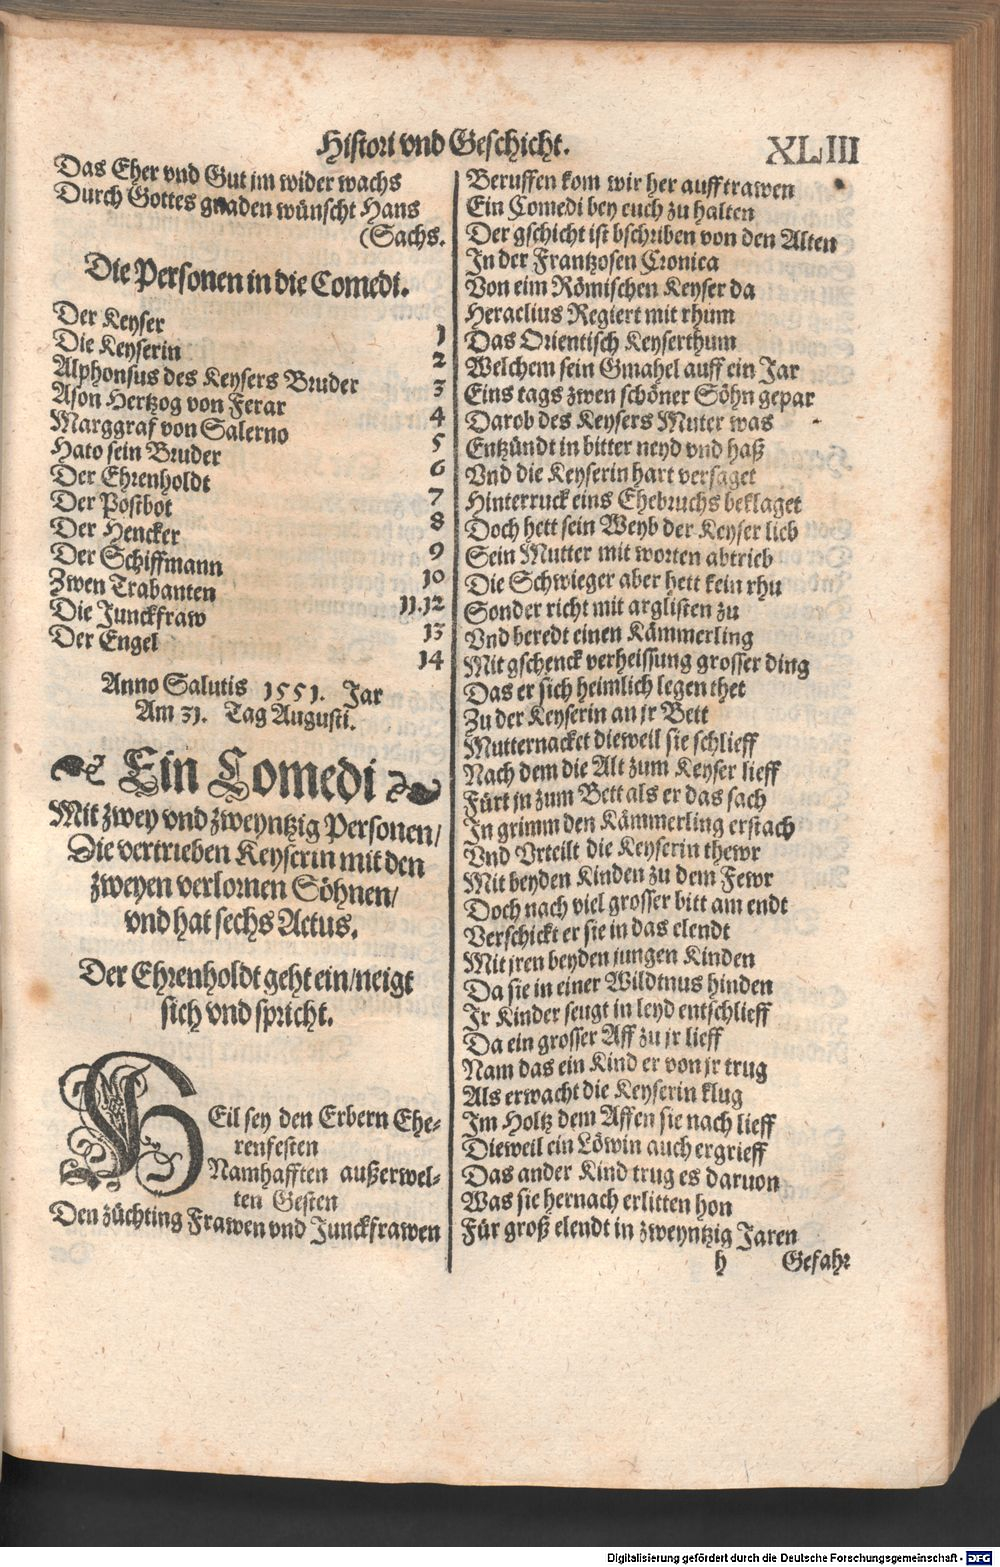 Histori vnd Geschicht.
XLIII
Das Eher vnd Gut jm wider wachs
Durch Gottes gnaden wünscht Hans
(Sachs.
Die Personen in die Comedi.
Der Keyser 1
Die Keyserin 2
Alphonsus des Keysers Bruder 3
Ason Hertzog von Ferar 4
Marggraf von Salerno 5
Hato sein Bruder 6
Der Ehrenholdt 7
Der Postbot 8
Der Hencker 9
Der Schiffmann 10
Zwen Trabanten 11.12
Die Junckfraw 13
Der Engel 14
Anno Salutis 1551. Jar
Am 31. Tag Augusti.
Ein Comedi
Mit zwey vnd zweyntzig Personen/
Die vertrieben Keyserin mit den
zweyen verlornen Söhnen/
vnd hat sechs Actus.
Der Ehrenholdt geht ein/neigt
sich vnd spricht.
HEil sey den Erbern Ehe-
renfesten
Namhafften außerwel-
ten Gesten
Den züchting Frawen vnd Junckfrawen
Beruffen kom wir her auff trawen
Ein Comedi bey euch zu halten
Der gschicht ist bschriben von den Alten
In der Frantzosen Cronica
Von eim Römischen Keyser da
Heraclius Regiert mit rhum
Das Orientisch Keyserthum
Welchem sein Gmahel auff ein Jar
Eins tags zwen schöner Söhn gepar
Darob des Keysers Muter was
Entzündt in bitter neyd vnd haß
Vnd die Keyserin hart versaget
Hinterruck eins Ehebruchs beklaget
Doch hett sein Weyb der Keyser lieb
Sein Mutter mit worten abtrieb
Die Schwieger aber hett kein rhu
Sonder richt mit arglisten zu
Vnd beredt einen Kämmerling
Mit gschenck verheissung grosser ding
Das er sich heimlich legen thet
Zu der Keyserin an jr Bett
Mutternacket dieweil sie schlieff
Nach dem die Alt zum Keyser lieff
Fürt jn zum Bett als er das sach
In grimm den Kämmerling erstach
Vnd Vrteilt die Keyserin thewr
Mit beyden Kinden zu dem Fewr
Doch nach viel grosser bitt am endt
Verschickt er sie in das elendt
Mit jren beyden jungen Kinden
Da sie in einer Wildtnus hinden
Ir Kinder seugt in leyd entschlieff
Da ein grosser Aff zu jr lieff
Nam das ein Kind er von jr trug
Als erwacht die Keyserin klug
Im Holtz dem Affen sie nach lieff
Dieweil ein Löwin auch ergrieff
Das ander Kind trug es daruon
Was sie hernach erlitten hon
Für groß elendt in zweyntzig Jaren
h Gefahr
Digitalisierung gefördert durch die Deutsche Forschungsgemeinschaft - DFG